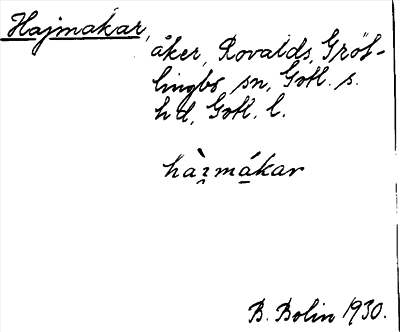 Hajmakar,
åker, Rovalds, Gröt-
lingbo sn, Gotl. s.
hd, Gotl. l.
hàɪ̯mákar
B. Bolin 1930.